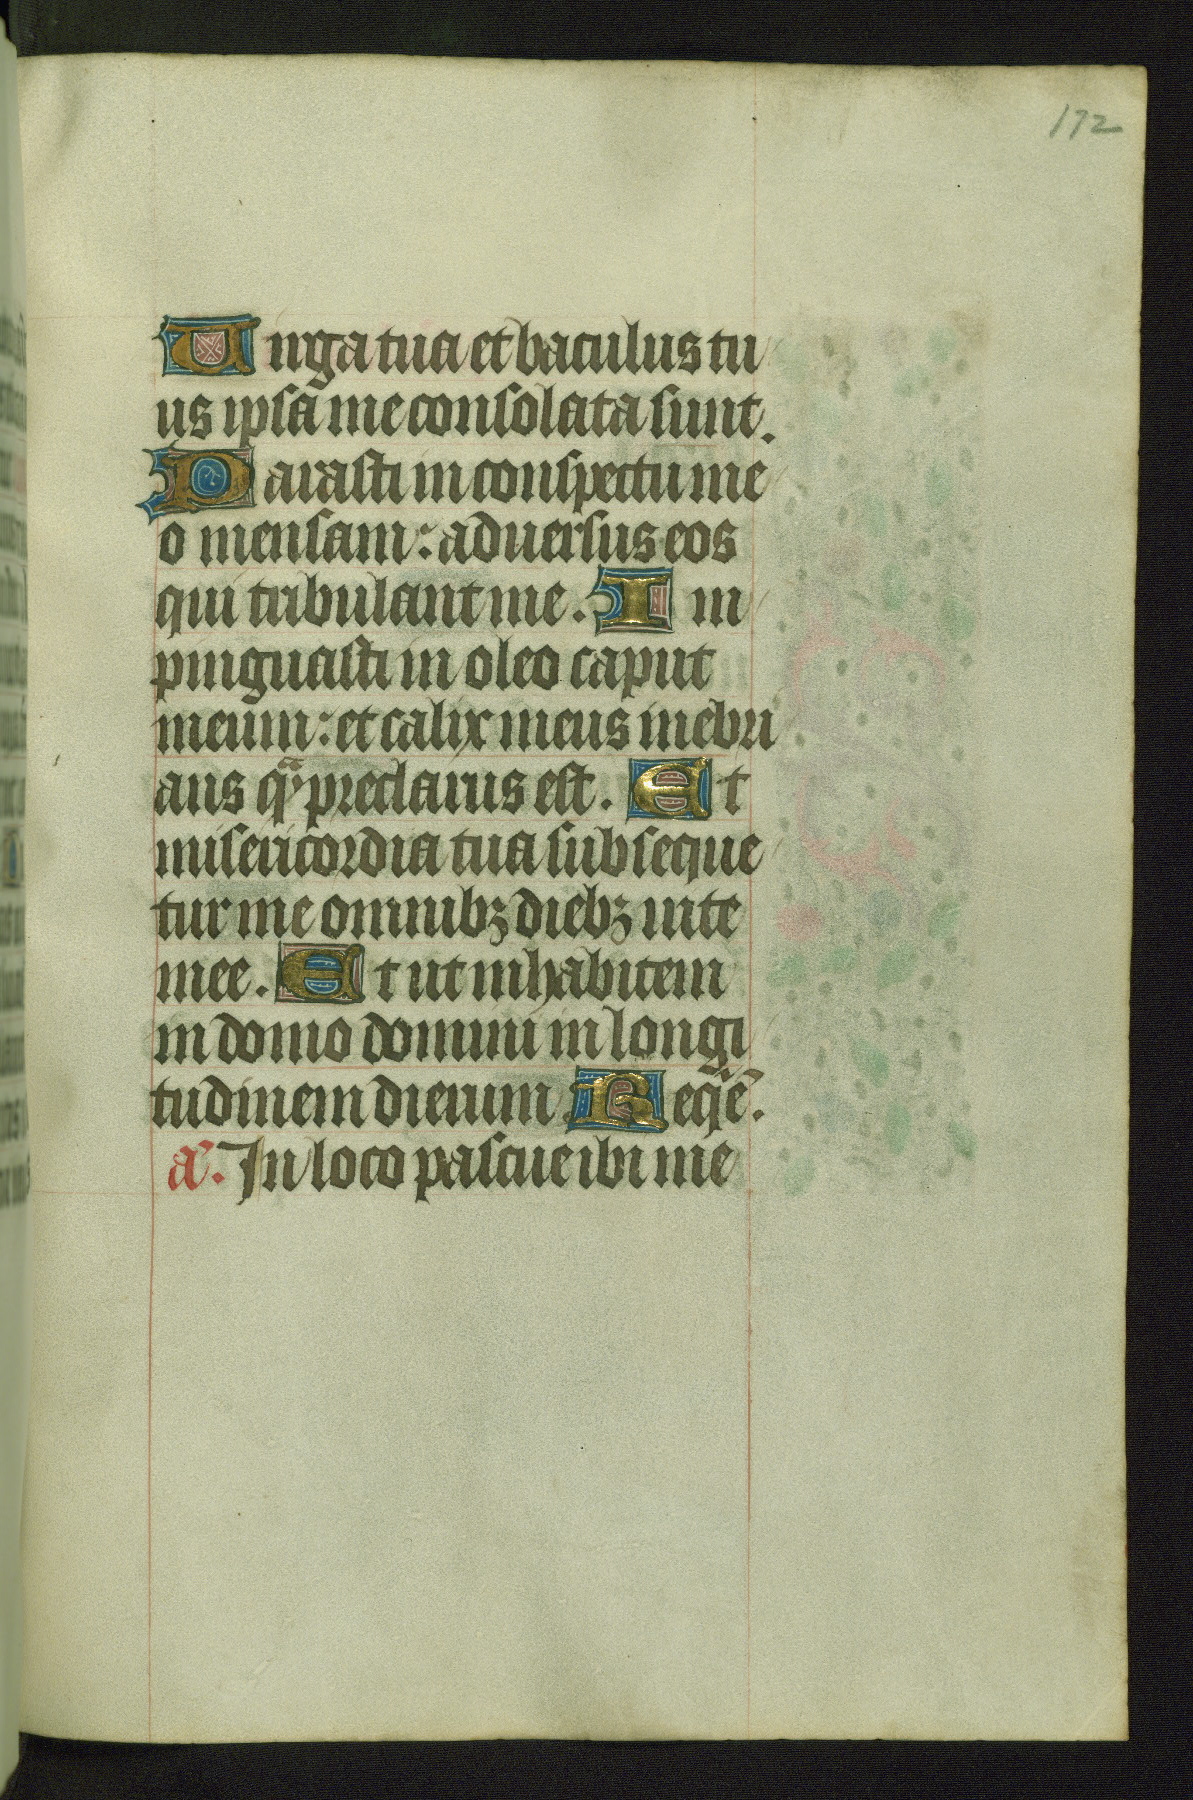 172
Uirga tua et baculus tu
us ipsa me consolata sunt.
Parasti in conspectu me
o mensam: aduersus eos
qui tribulant me. Im
pinguasti in oleo caput
meum: et calix meus inebri
ans qᵃ̃ preclarus est. Et
misericordia tua subseque
tur me omnibꝫ diebꝫ uite
mee. Et ut inhabitem
in domo domini in longi
tudinem dierum. Reqͥẽ.
a᷑. In loco pascue ibi me